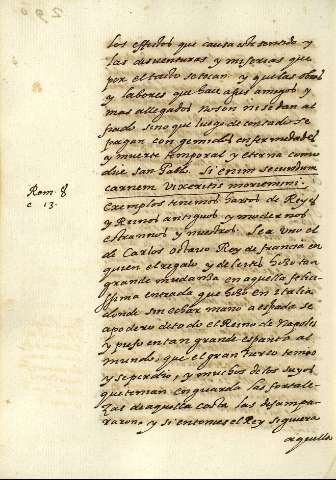 los effectos que causa este sentido y
las desventuras y miserias que
por el tacto se tocan y que las obras
y labores que hace a sus amigos y
mas allegados no son ni sedan al
fiado sino que luego de contado se
pagan con gemidos enfermedades
y muerte temporal y eterna como
dize san Pablo. Si enim secundum
carnem vixeritis moriemini.
Rom. 8
c 13.
exemplos tenemos harros de Reyes
y Reinos antiguos y modernos
estrannos y nuestros. Sea uno el
de Carlos octavo Rey de francia en
quien el regalo y deleites hizo tan
grande mudanza en aquella felici
ssima entrada que hizo en Italia
donde sin echar mano a espada se
apodero de todo el Reino de Napoles
y puso en tan grande espanto al
mundo, que el gran turco temio
y se perdio, y muchos de los suyos
que tenian en guarda las fortale
zas de aquella costa las desampa
raron, y si entonces el Rey siguiera
aquella